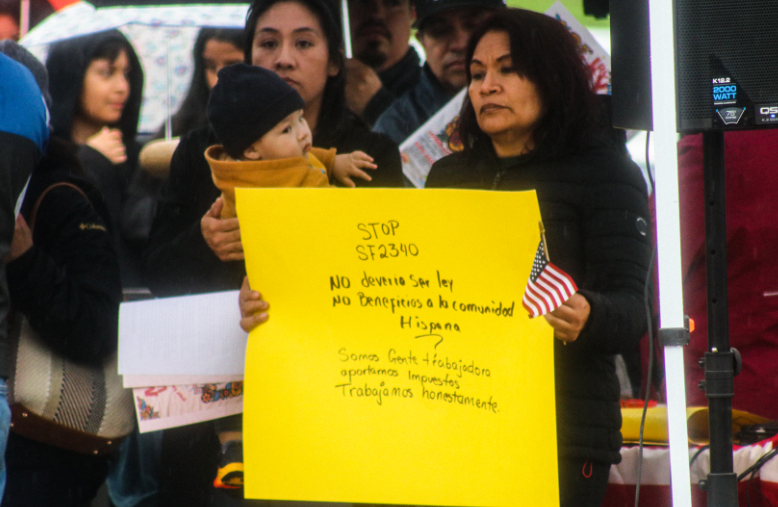 STOP
SF2340
NO deveria ser ley
NO Beneficios a la comunidad
Hispana
Somos Gente trabajadora
aportamos Impuestos
Trabajamos honestamente.
K12.2
2000
WATT
QSC
Columbia